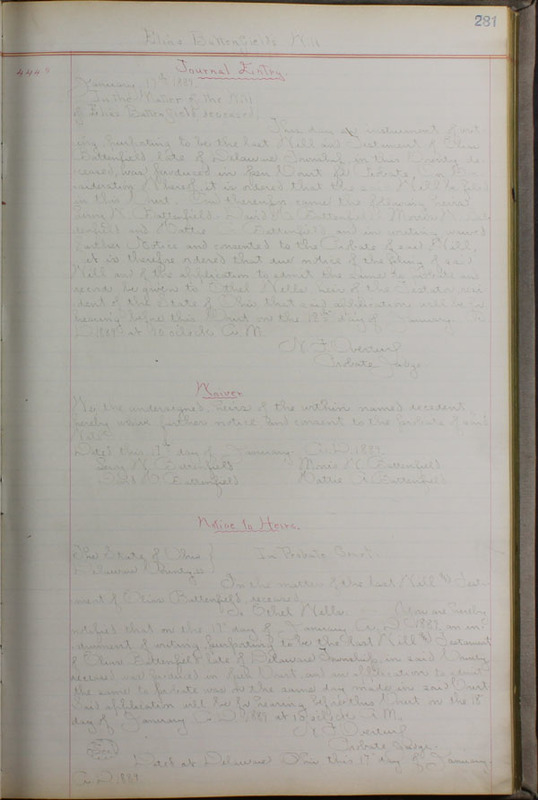 281
Elias Battenfield's Will
4448
Journal Entry.
January 17th 1889.
In the Matter of the Will
of Elias Battenfield deceased
This day an instrument of writ-
ing purporting to be the last Will and Testament of Elias
Battenfield late of Delaware Township, in this County de-
ceased, was produced in open Court for Probate, In con-
sideration of Whereof it is ordered that the said Will be filed
in this Court. And thereupon came the following heirs
Battenfield Battenfield
and Mattie Battenfield and in writing waived
further Notice and consented to the Probate of said Will,
it is therefore ordered that due notice of the filing of said
Will and of the application to admit the same to Probate and
record be given to Ethel Wells heir of the Testator resi-
dent of the State of Ohio that said application will be for
hearing before this Court on the 18th day of January A.
D. 1889 at 10 o'clock A.M.
N. F. Overturf
Probate Judge
Waiver.
We the undersigned, heirs of the within named decedent
hereby waive further notice and consent to the Probate of said
Will.
Dated this 17th day of January A.D. 1889.
Battenfield Battenfield
Battenfield Mattie Battenfield
Notice to Heirs.
The State of Ohio } In Probate Court.
Delaware County, ss }
In the matter of the last Will & Testa-
ment of Elias Battenfield, deceased.
To Ethel Wells. You are hereby
notified that on the 17th day of January A.D. 1889, an in-
strument of writing, purporting to be the last Will & Testament
of Elias Battenfield late of Delaware Township, in said County,
deceased was produced in open Court, and an application to admit
the same to probate was on the same day made in said Court
Said application will be for hearing before this Court on the 18
day of January A.D. 1889 at 10 o'clock A.M.
N. F. Overturf
Probate Judge.
Dated at Delaware Ohio this 17th day of January
A.D. 1889